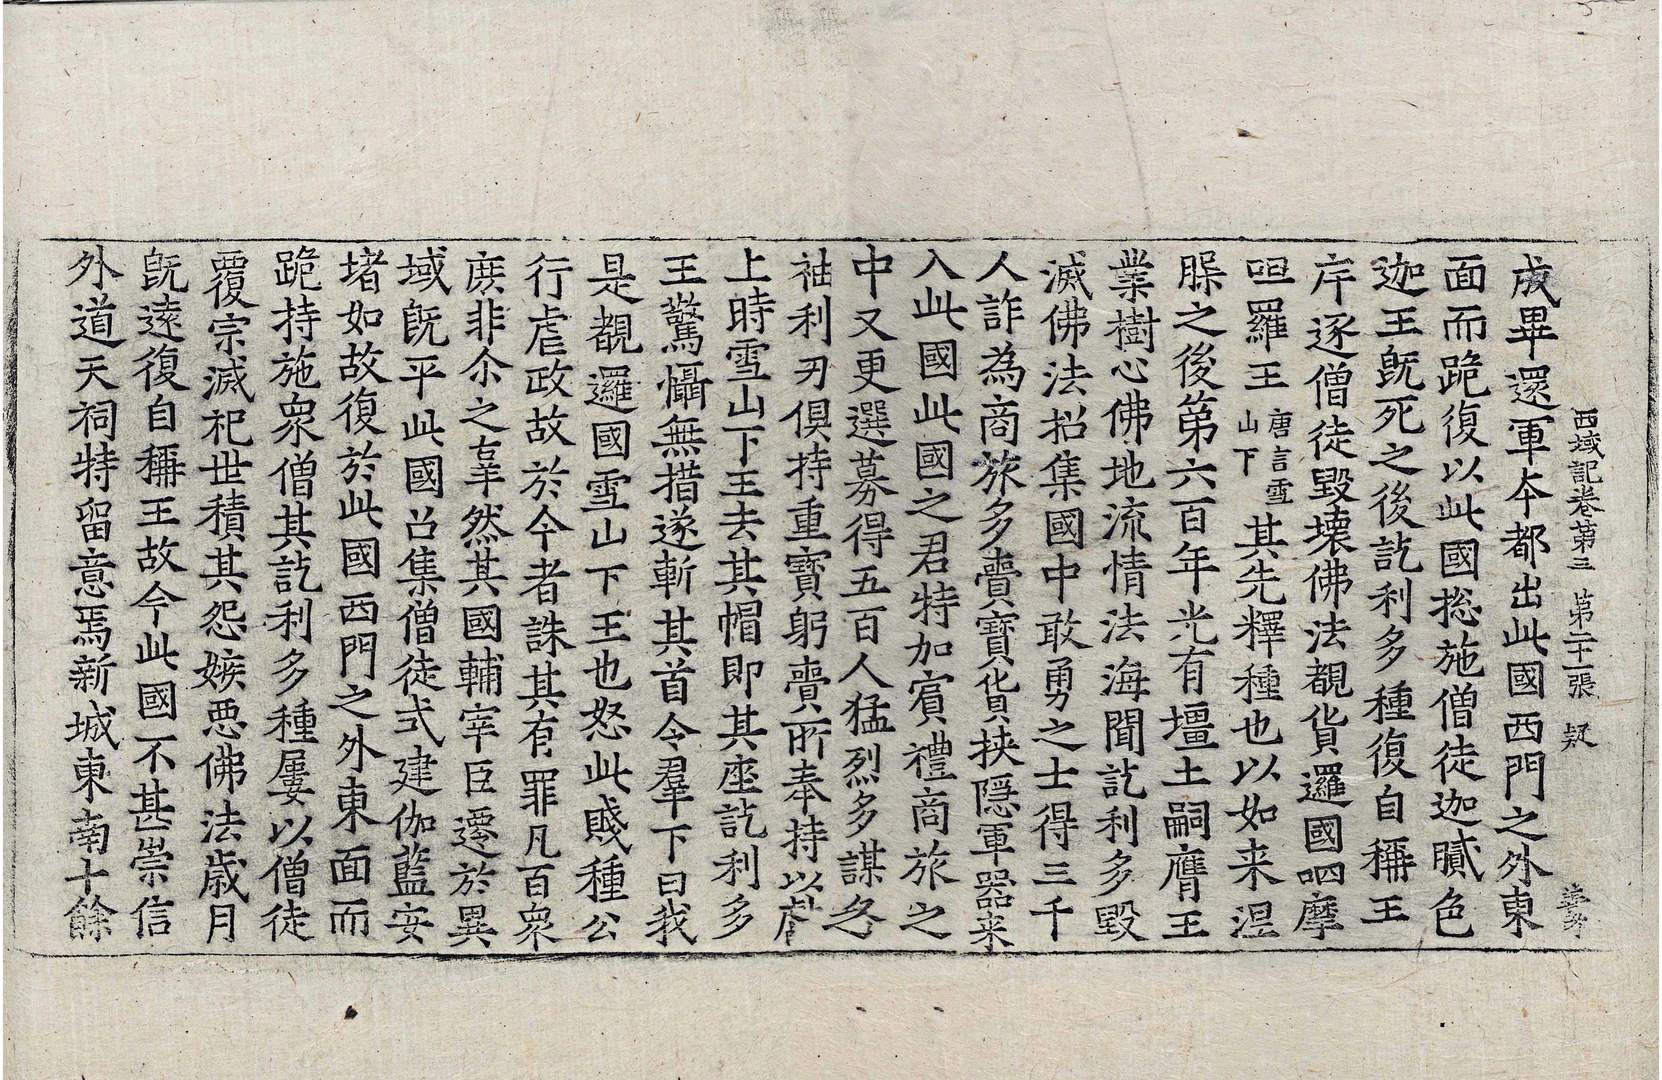 西域記卷第三 第二十一張 疑
成畢還軍本都出此國西門之外東
面而跪復以此國捴施僧徒迦膩色
迦王旣死之後訖利多種復自稱王
斥逐僧徒毀壞佛法覩貨邏國呬摩
呾羅王唐言雪山下其先釋種也以如来涅
槃之後第六百年光有壃土嗣膺王
業樹心佛地流情法海聞訖利多毀
滅佛法招集國中敢勇之士得三千
人詐為商旅多賷寶貨挾隱軍器来
入此國此國之君特加賓禮商旅之
中又更選募得五百人猛烈多謀各
袖利刃俱持重寶躬賷所奉持以獻
上時雪山下王去其帽即其座訖利多
王驚懾無措遂斬其首令羣下曰我
是覩邏國雪山下王也怒此賤種公
行虐政故於今者誅其有罪凡百衆
庶非尒之辜然其國輔宰臣遷於異
域旣平此國召集僧徒式建伽藍安
堵如故復於此國西門之外東面而
跪持施衆僧其訖利多種屢以僧徒
覆宗滅祀世積其怨嫉惡佛法歲月
旣遠復自稱王故今此國不甚崇信
外道天祠特留意焉新城東南十餘